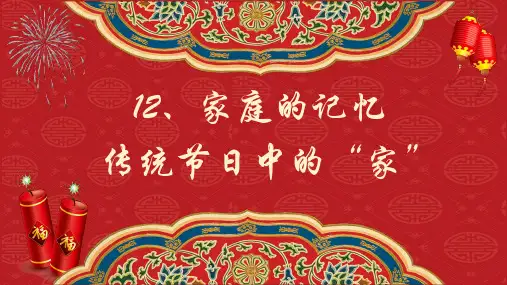 12、家庭的记忆
传统节日中的“家”
福
福